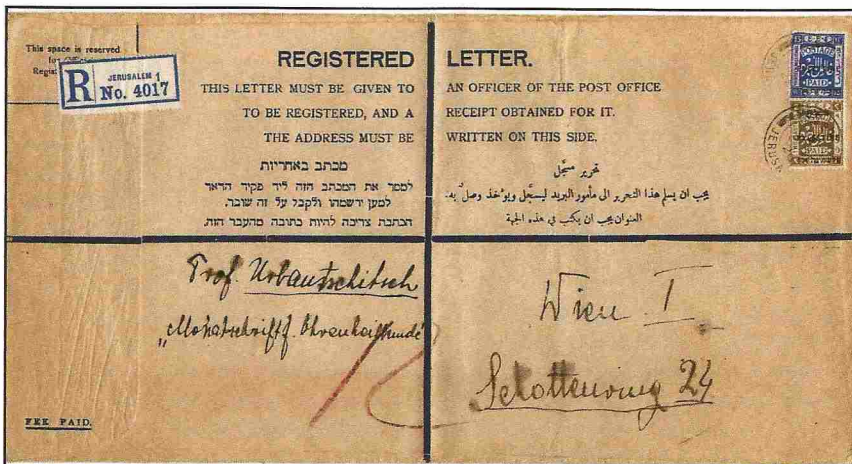 This space is reserved
R JERUSALEM 1
No. 4017
REGISTERED LETTER.
THIS LETTER MUST BE GIVEN TO AN OFFICER OF THE POST OFFICE
TO BE REGISTERED, AND A RECEIPT OBTAINED FOR IT.
THE ADDRESS MUST BE WRITTEN ON THIS SIDE.
מכתב באחריות
למסר את המכתב הזה ליד פקיד הדאר
למען ירשמהו ולקבל על זה שובר.
הכתבת צריכה להיות כתובה מהעבר הזה.
تحرير مسجّل
يجب ان يسلم هذا التحرير الى مأمور البريد ليسجّل ويؤخذ وصلٌ به.
العنوان يجب ان يكتب في هذه الجهة
POSTAGE
PAID
PAID
JERUS
Prof. Urbantschitsch
„Monatschrift f. Ohrenheilkunde"
Wien I
Schottenring 24
FEE PAID.